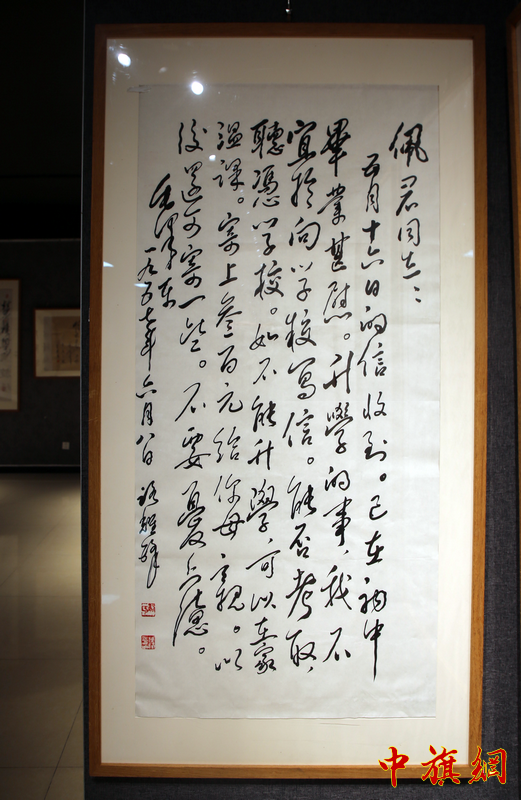 佩君同志：
五月十六日的信收到。已在初中
畢業甚慰。升學的事，我不
宜於向学校写信。能否考取，
聽憑学校。如不能升學，可以在家
溫課。寄上叁百元给你母亲。以
後還可寄一些。不要憂慮。
毛澤东
一九五七年六月八日
中旗網